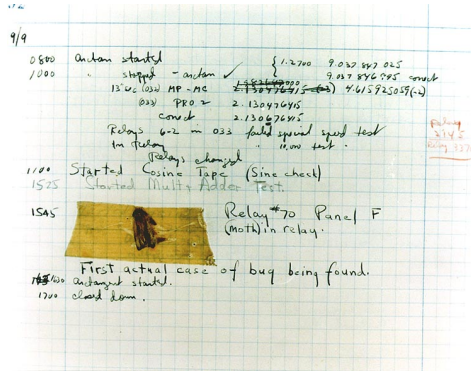 9/9
0800 antan started { 1.2700 9.037 847 025
1000 " stopped - antan ✓ 9.037 846 995 conect
13"uc (032) MP-MC 2.130476415 (-3) 4.615925059(-2)
(033) PRO 2 2.130476415
conect 2.130676415
Relays 6-2 in 033 failed special speed test
in relay " 10,000 test .
Relays changed
Relay
2145
Relay 3370
1100 Started Cosine Tape (Sine check)
1525 Started Mult+ Adder Test.
1545 Relay #70 Panel F
(moth) in relay.
First actual case of bug being found.
1630 antangent started.
1700 closed down.